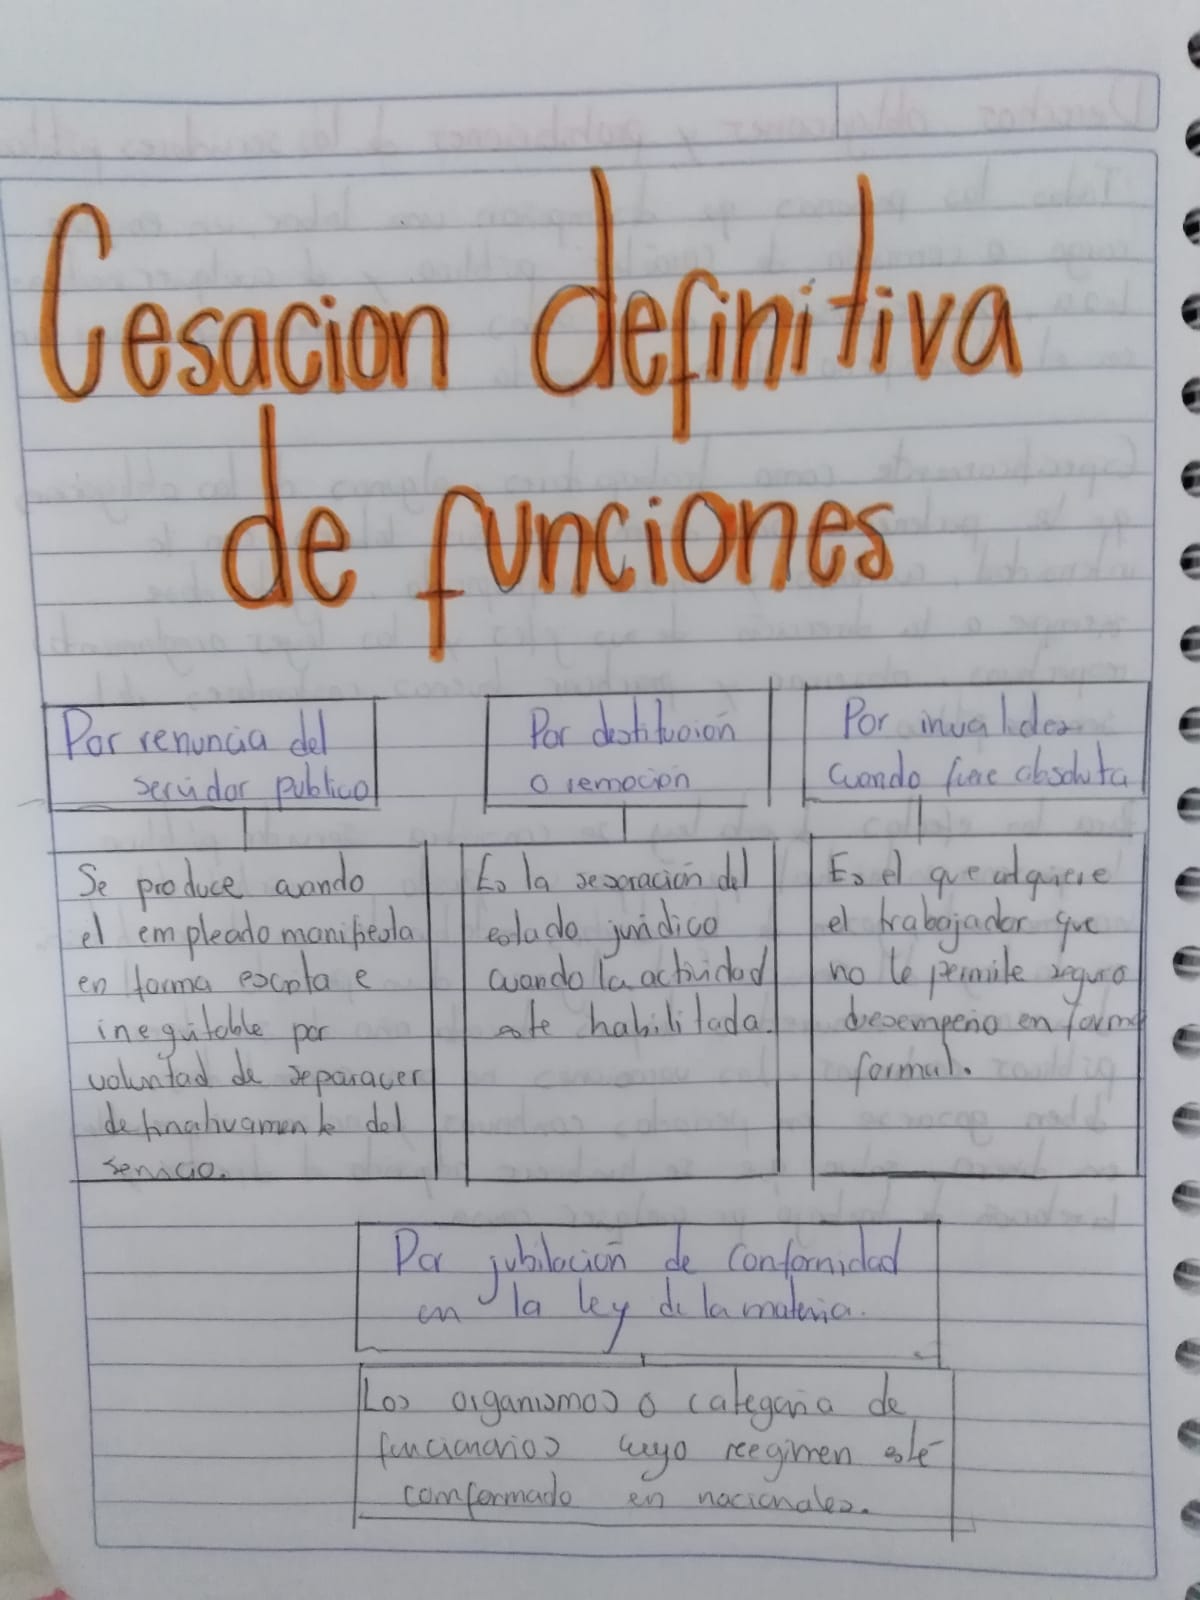 Cesacion definitiva
de funciones
Por renuncia del
servidor publico
Se produce cuando
el empleado manifiesta
en forma escrita e
inequitable por
voluntad de separacer
definativamente del
servicio.
Por destitución
o remoción
Es la separación del
estado jurídico
cuando la actividad
este habilitada.
Por invalidez
cuando fuere absoluta
Es el que adquiere
el trabajador que
no le permite seguro
desempeño en forma
formal.
Por jubilación de conformidad
en la ley de la materia.
Los organismos o categoria de
funcionarios cuyo reegimen esté
comformado en nacionales.